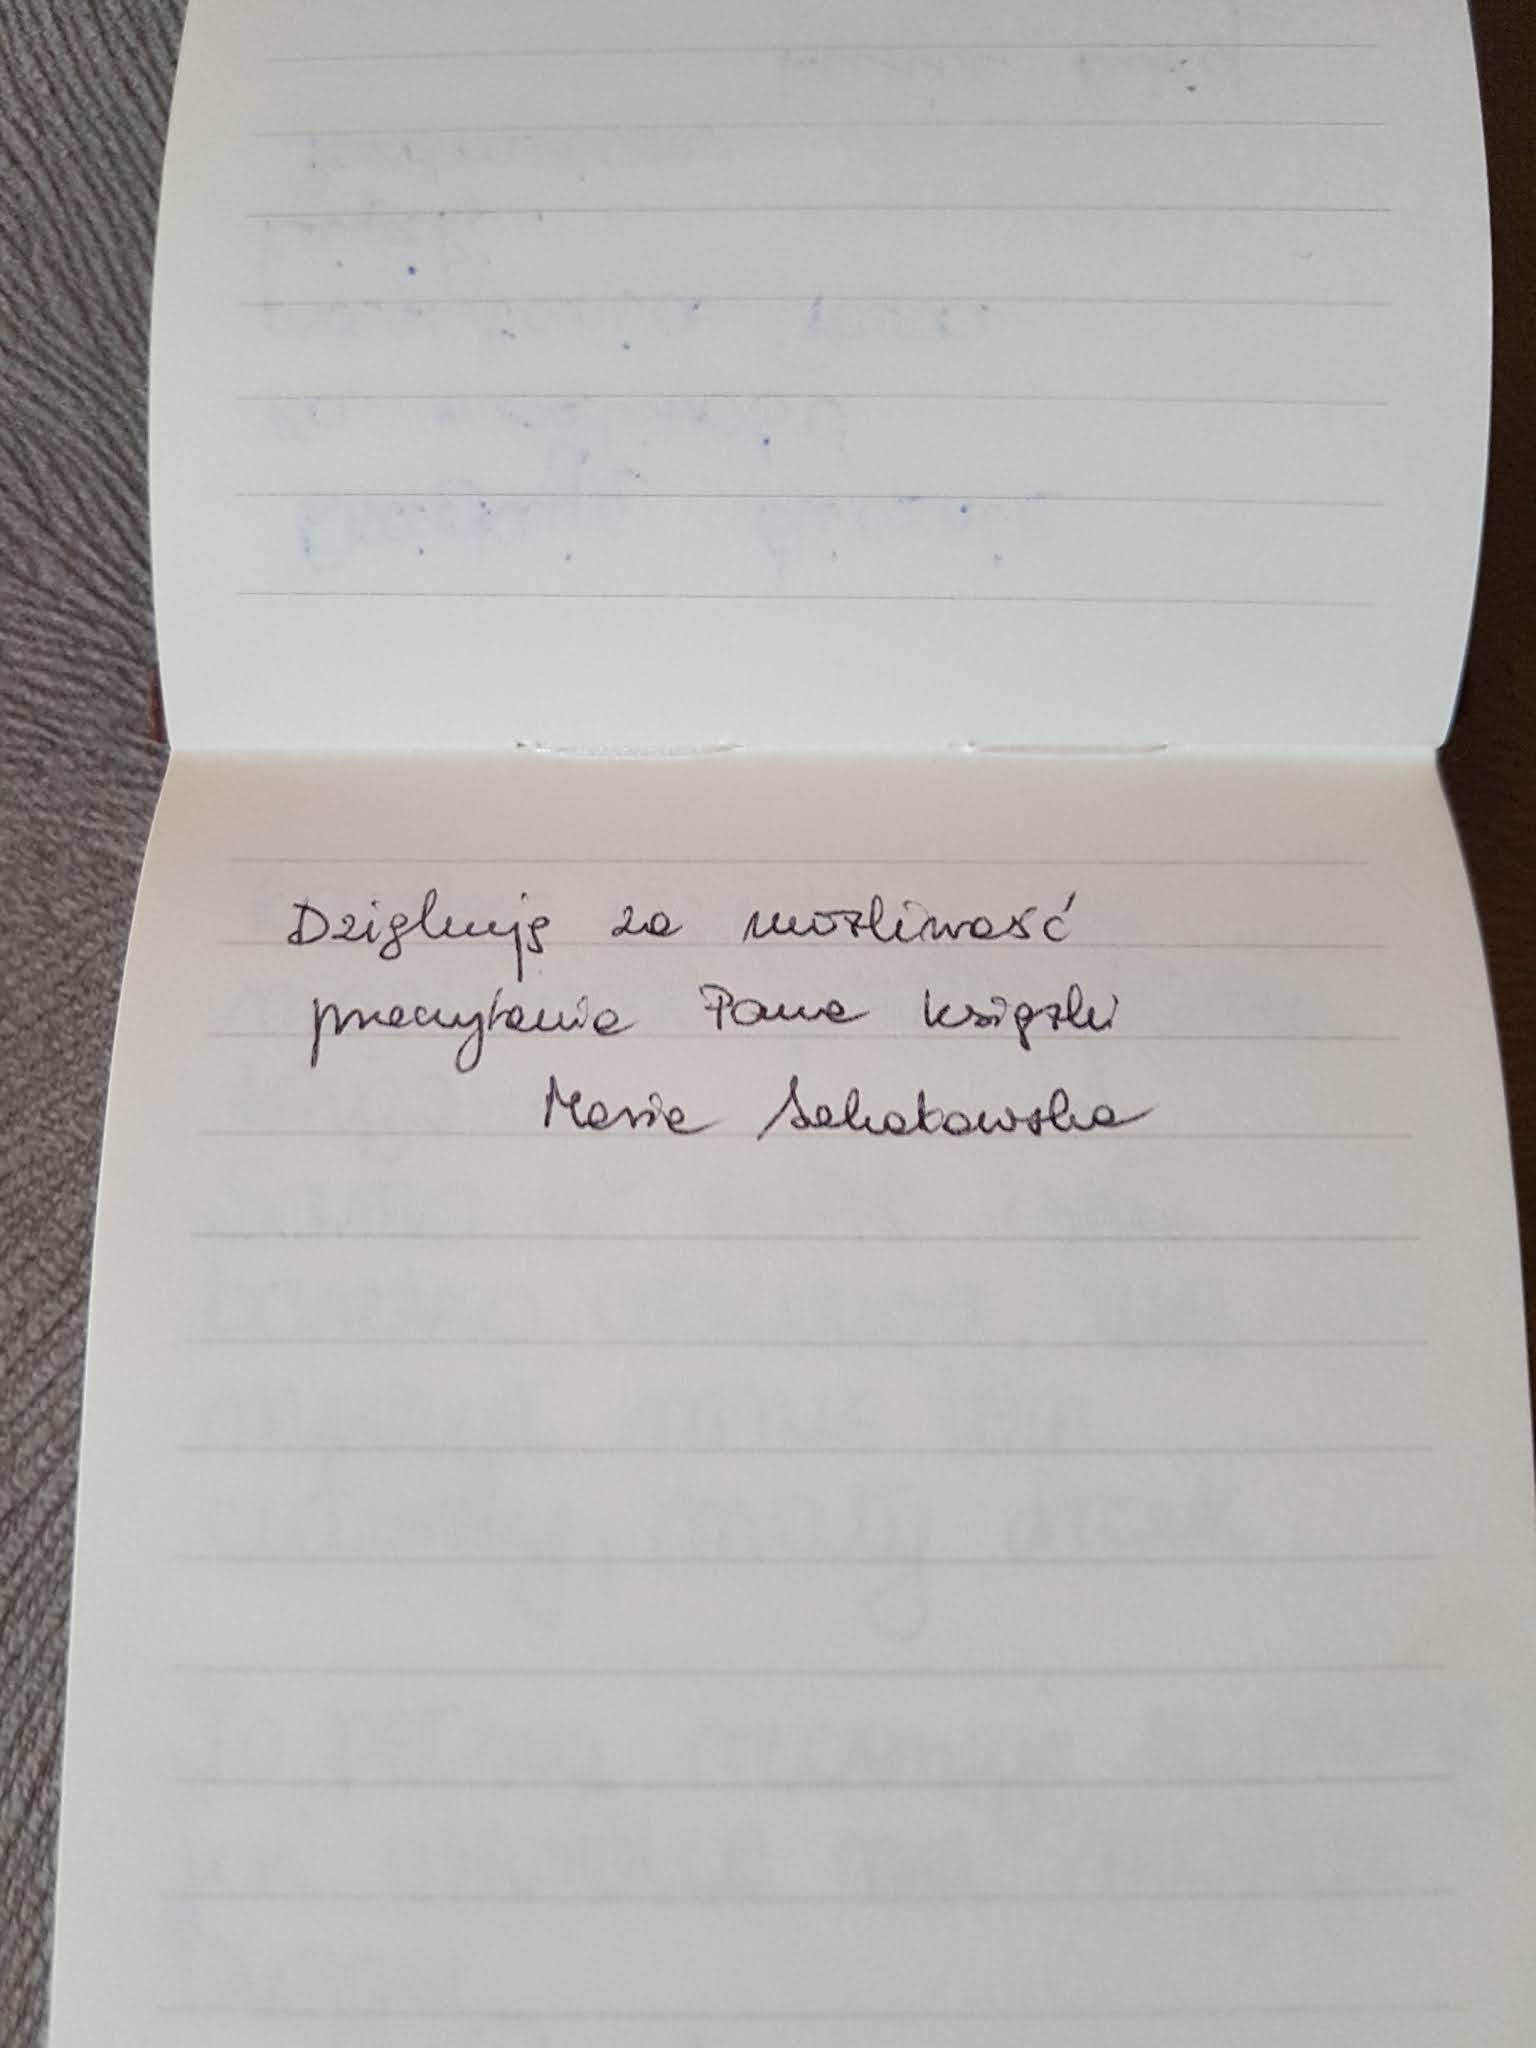 Dziękuję za możliwość
przeczytania Pana książki
Maria